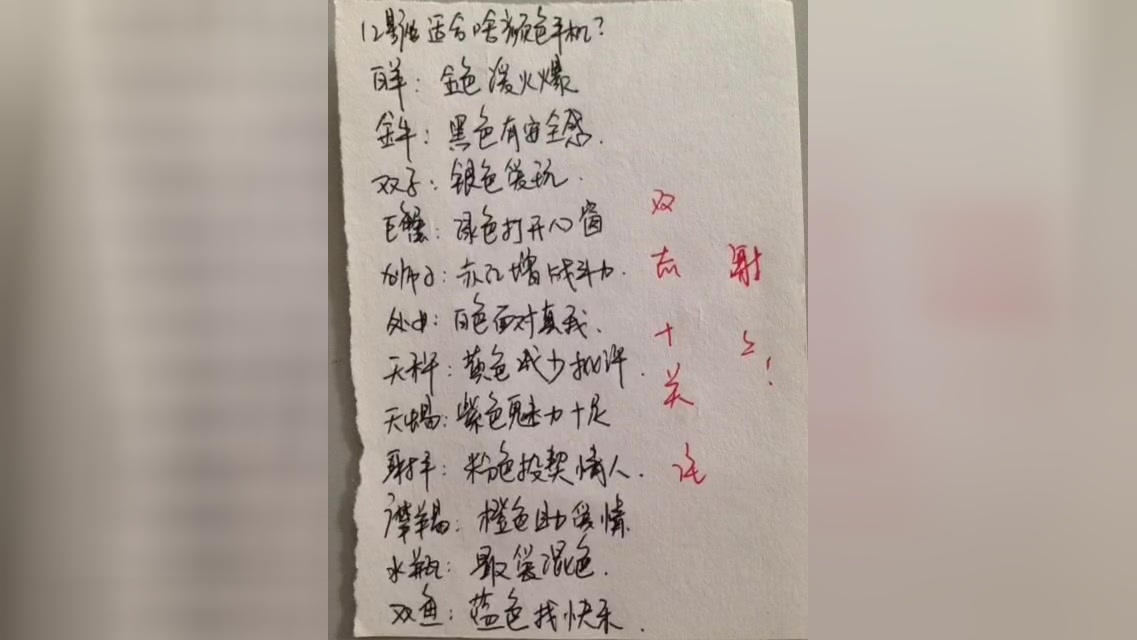 12星座适合啥颜色手机?
白羊:金色漫火爆
金牛:黑色有安全感.
双子:银色爱玩.
巨蟹:绿色打开心窗
狮子:赤红增战斗力.
处女:白色面对真我.
天秤:黄色减少批评.
天蝎:紫色魅力十足
射手:粉色投契情人.
摩羯:橙色助爱情.
水瓶:最爱混色.
双鱼:蓝色找快乐.
双
击
十
关
注
谢
谢!